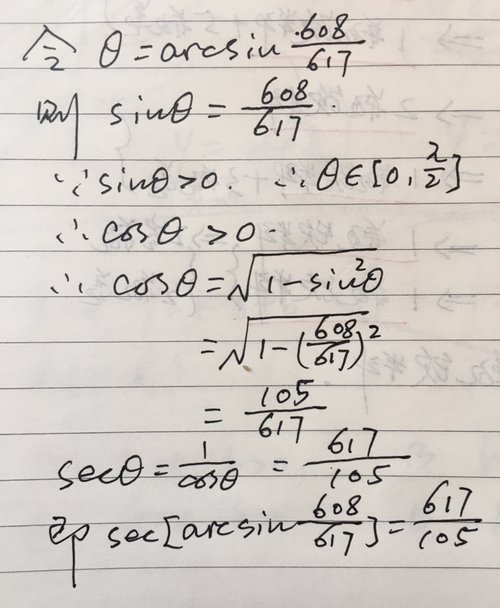 令 θ = arcsin 608/617
则 sinθ = 608/617.
∵ sinθ > 0. ∴ θ ∈ [0, π/2]
∴ cosθ > 0.
∴ cosθ = √(1 - sin²θ)
= √(1 - (608/617)²)
= 105/617
secθ = 1/cosθ = 617/105
即 sec[arcsin 608/617] = 617/105